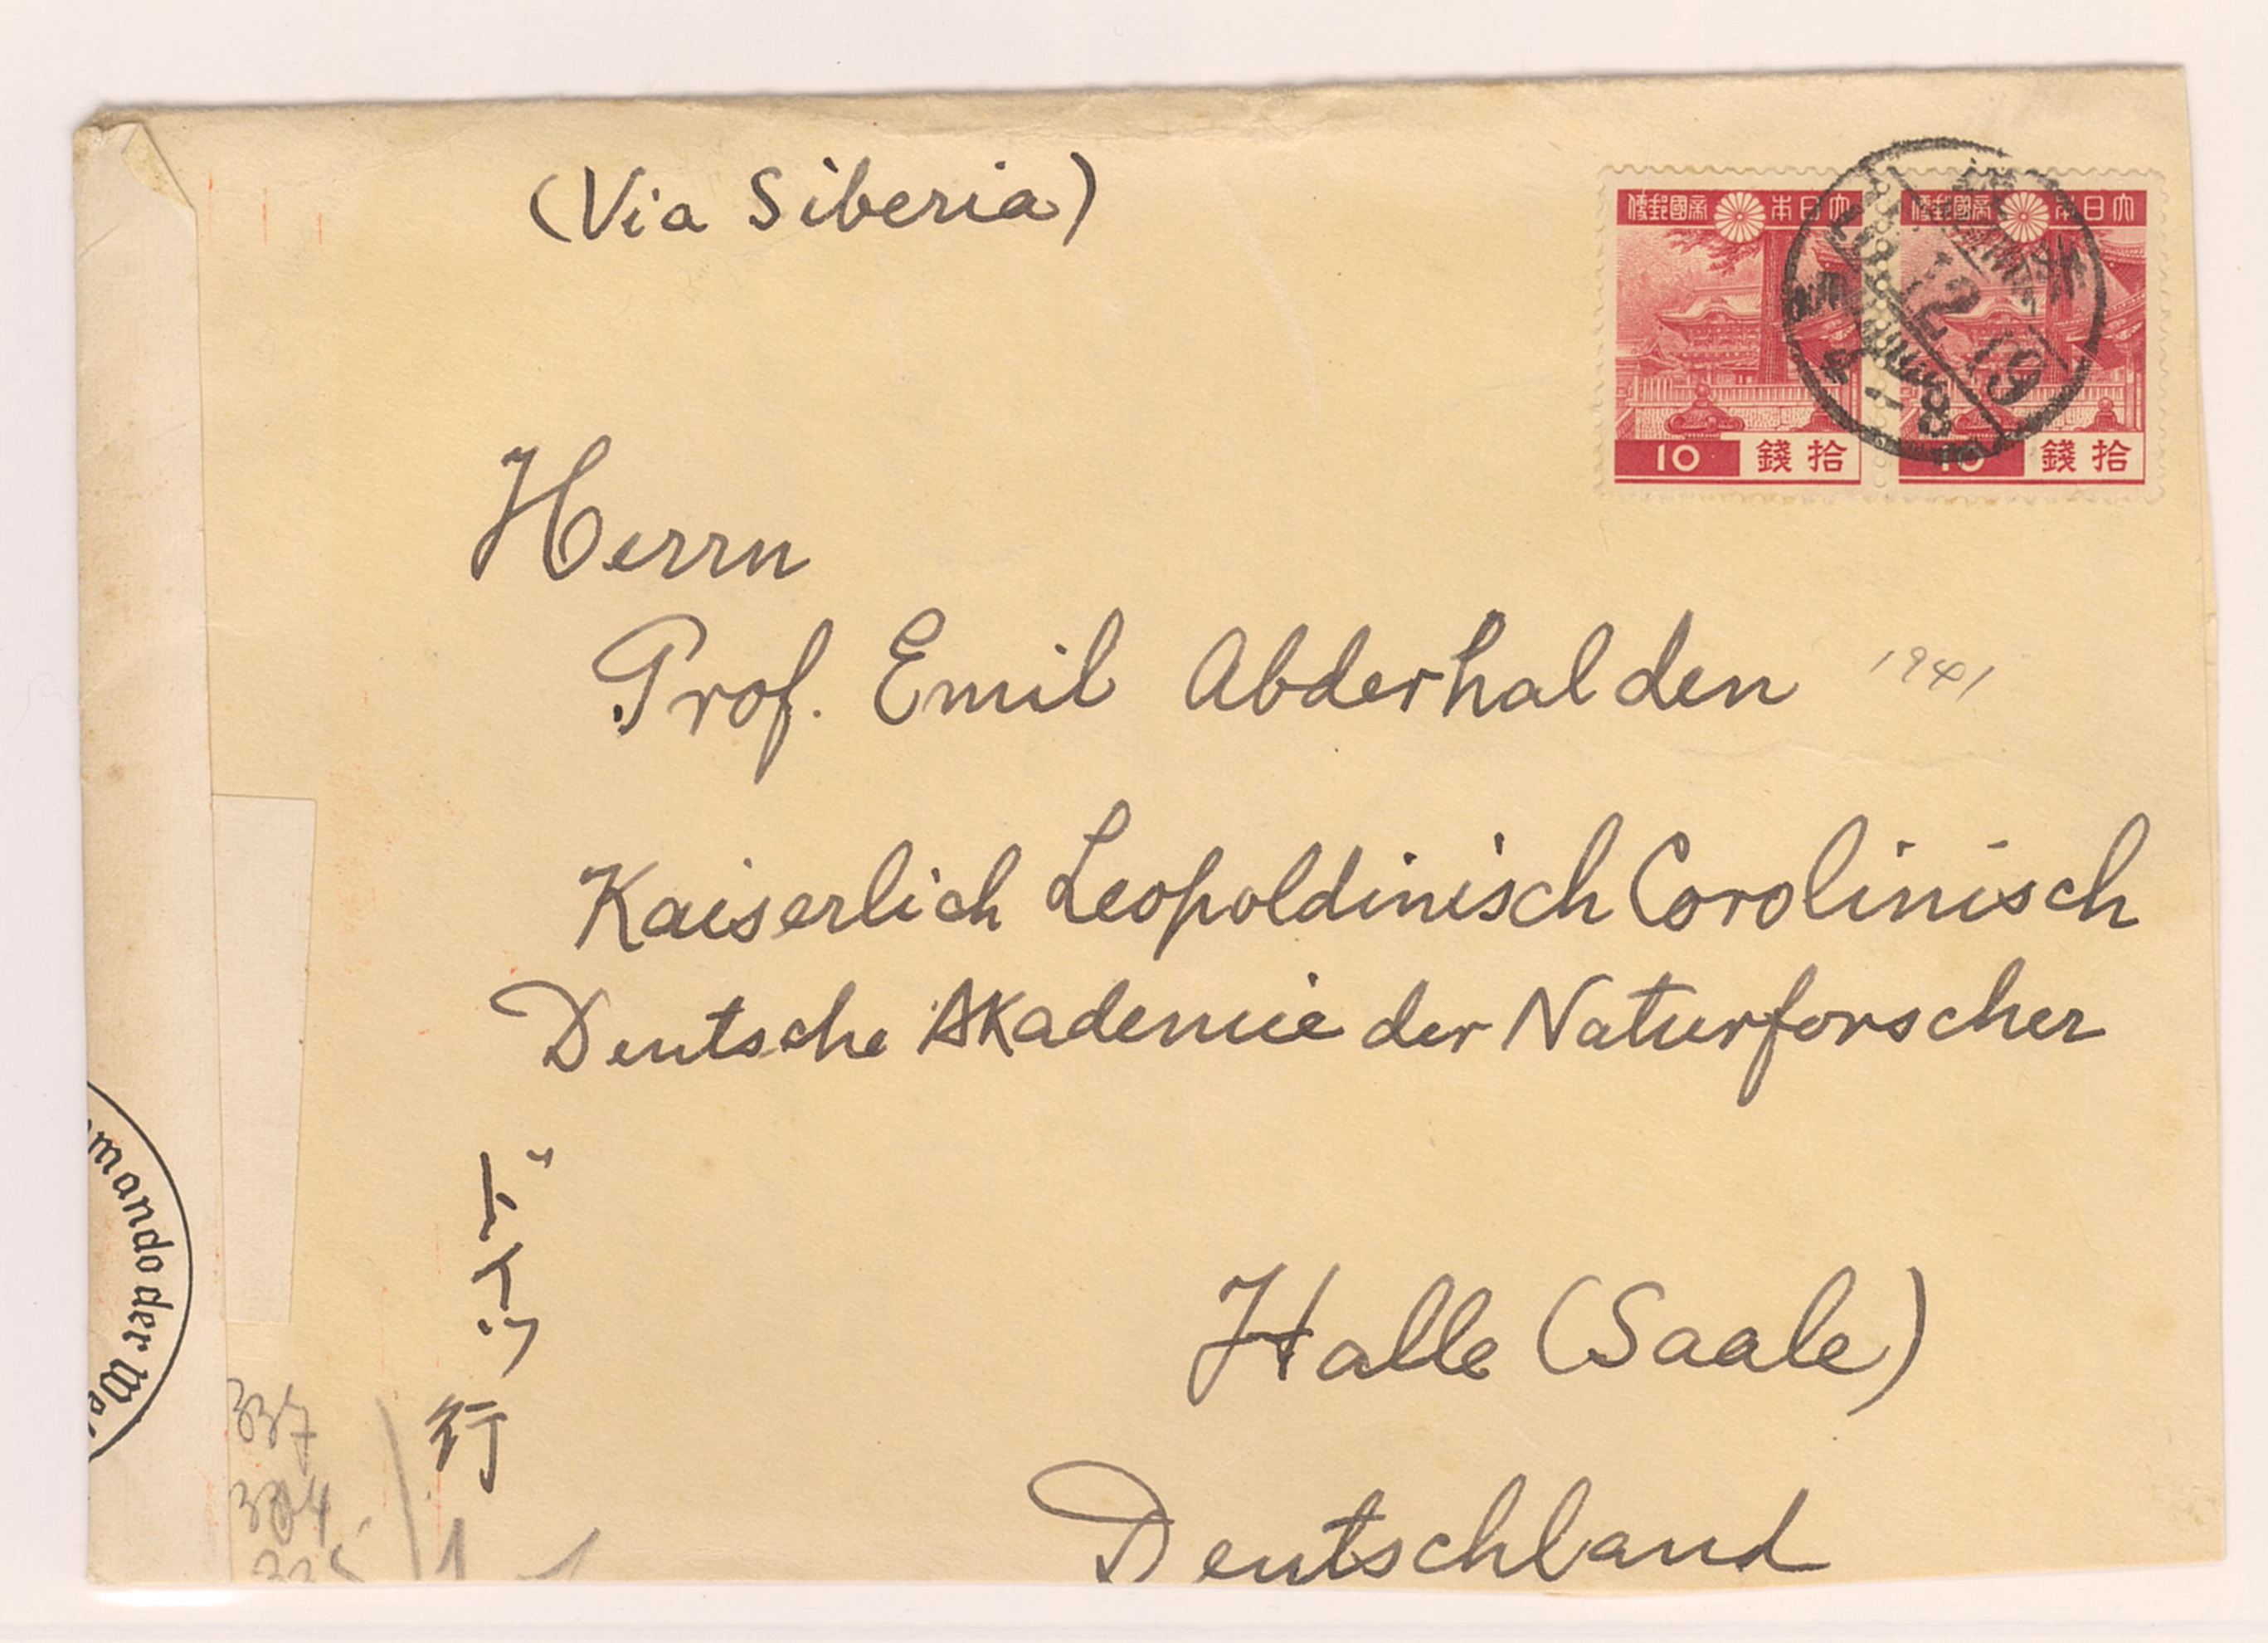 (Via Siberia)
大日本帝國郵便
大日本帝國郵便
12
19
8
10 拾錢
10 拾錢
Herrn
Prof. Emil Abderhalden
1941
Kaiserlich Leopoldinisch Corolinisch
Deutsche Akademie der Naturforscher
ドイツ行
mando der We
Halle (Saale)
Deutschland
337
304